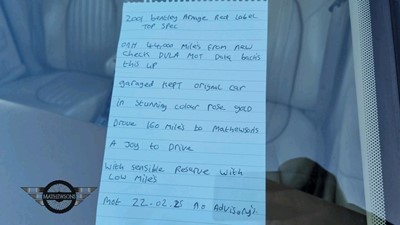 2001 Bentley Arnage Red Label
Top Spec
only 44,000 miles from new
Check DVLA MOT Data backs
this up
garaged kept orignal car
in Stunning colour rose gold
Drove 160 miles to Mathewsons
A Joy to Drive
with sensible Reserve with
Low miles
Mot 22.02.25 no Advisory's
MATHEWSONS